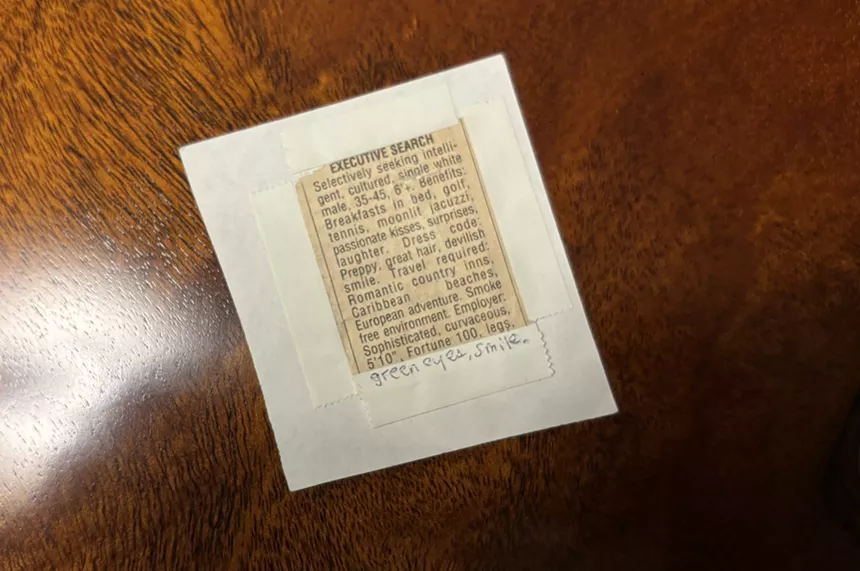 EXECUTIVE SEARCH
Selectively seeking intelli-
gent, cultured, single white
male, 35-45, 6'+. Benefits:
Breakfasts in bed, golf,
tennis, moonlit jacuzzi,
passionate kisses, surprises,
laughter. Dress code:
Preppy, great hair, devilish
smile. Travel required:
Romantic country inns,
Caribbean beaches,
European adventure. Smoke
free environment. Employer:
Sophisticated, curvaceous,
5'10", Fortune 100, legs,
green eyes, smile.